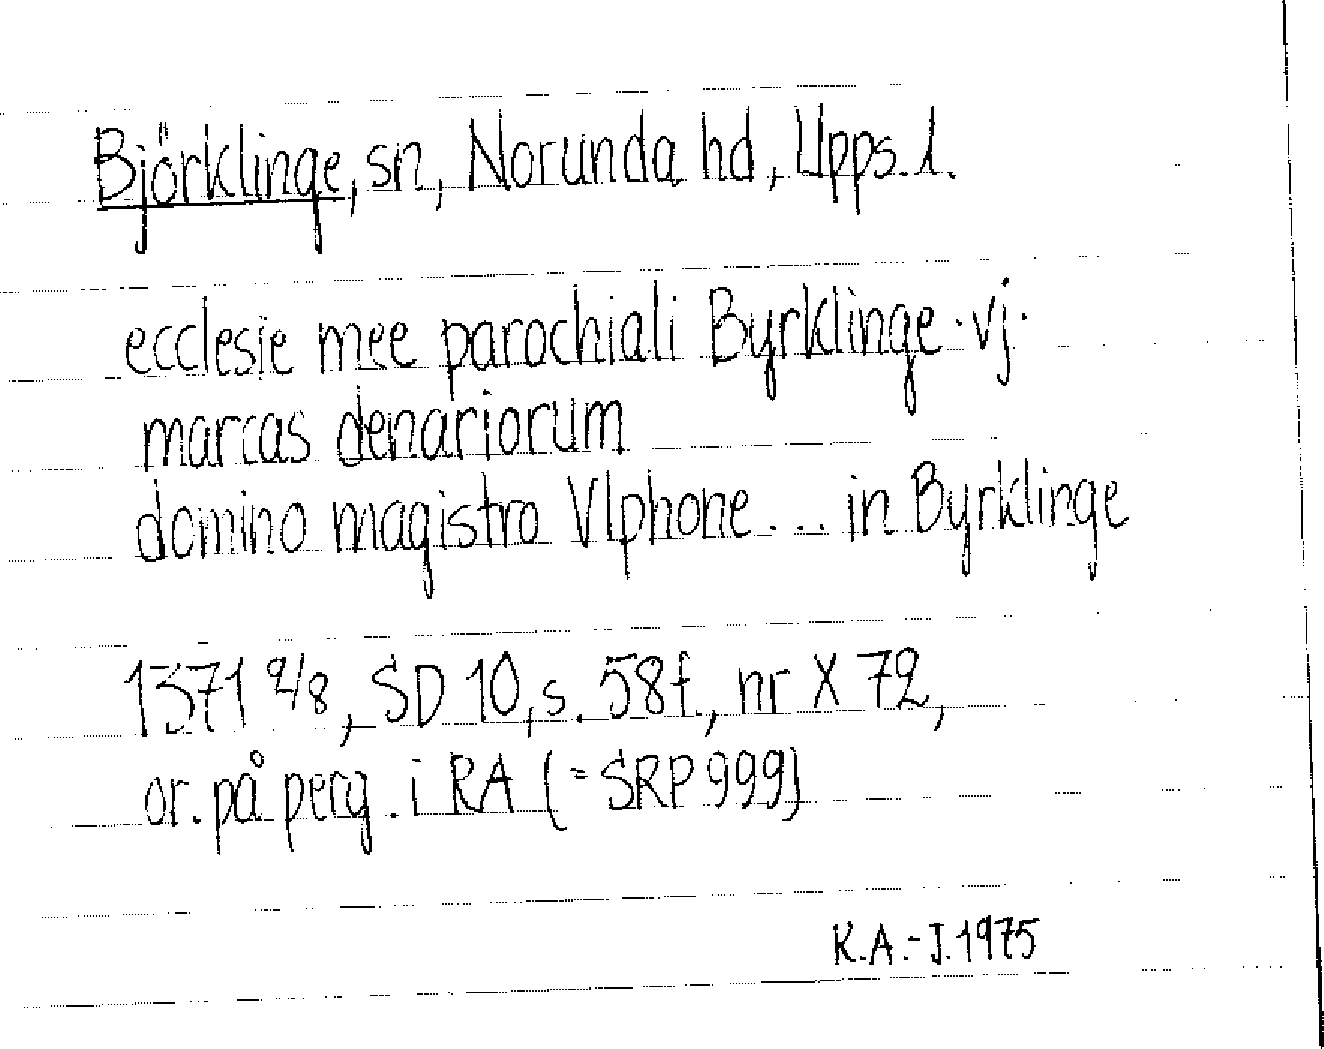 Björklinge, sn, Norunda hd, Upps. l.
ecclesie mee parochiali Byrklinge ·vj·
marcas denariorum
domino magistro Vlphone... in Byrklinge
1371 2/8, SD 10, s. 58f, nr X 72,
or. på perg. i RA (= SRP 999)
K.A.-J. 1975